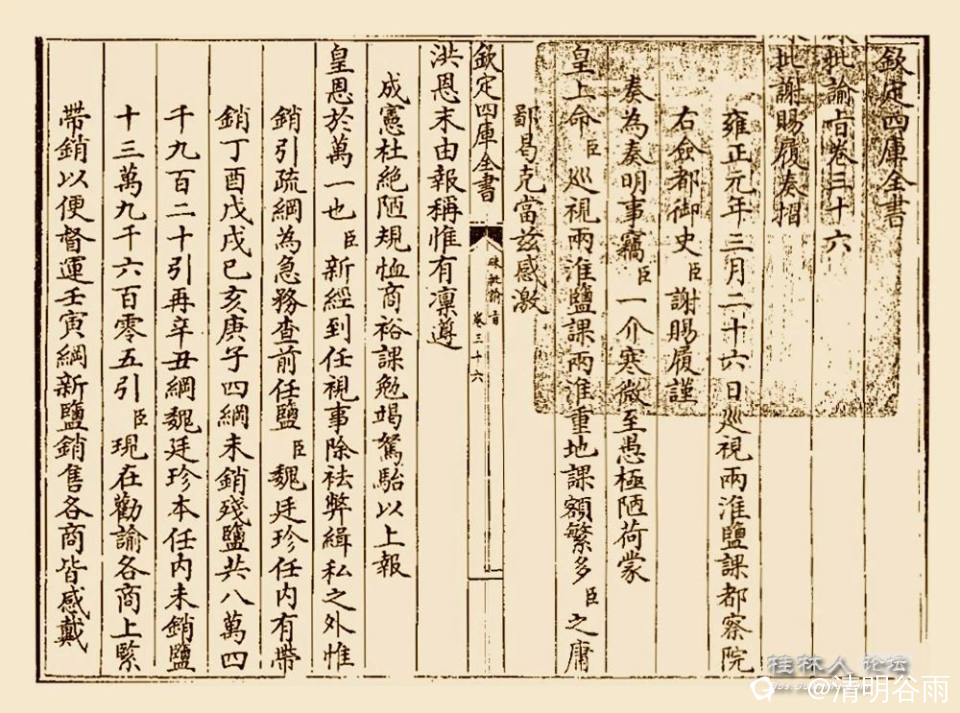 欽定四庫全書
批諭旨卷三十六
批謝賜履奏摺
雍正元年三月二十六日巡視兩淮鹽課都察院
右僉都御史臣謝賜履謹
奏為奏明事竊臣一介寒微至愚極陋荷蒙
皇上命臣巡視兩淮鹽課兩淮重地課額繁多臣之庸
鄙曷克當兹感激
欽定四庫全書
硃批諭旨
卷三十六
洪恩末由報稱惟有凜遵
成憲杜絕陋規恤商裕課勉竭駑駘以上報
皇恩於萬一也臣新經到任視事除祛弊緝私之外惟
銷引疏綱為急務查前任鹽臣魏廷珍任內有帶
銷丁酉戊戌己亥庚子四綱未銷殘鹽共八萬四
千九百二十引再辛丑綱魏廷珍本任內未銷鹽
十三萬九千六百零五引臣現在勸諭各商上緊
帶銷以便督運壬寅綱新鹽銷售各商皆感戴
桂林人论坛
@清明谷雨